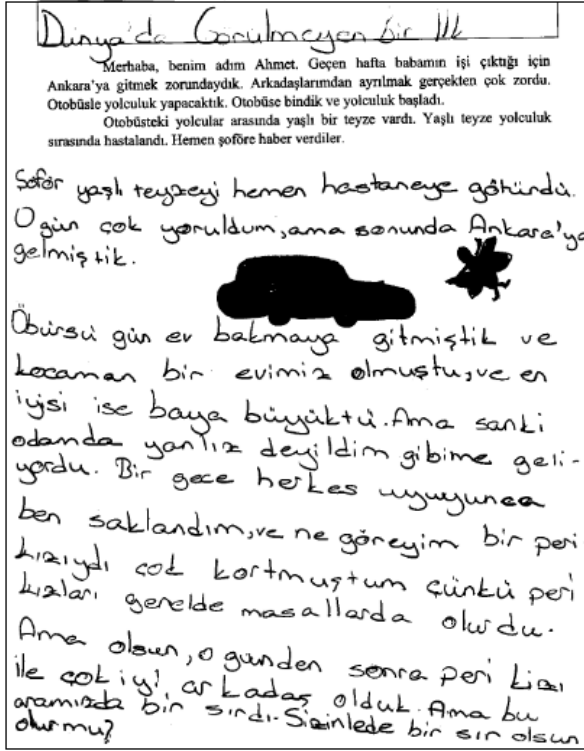 Dünya'da Görülmeyen bir İlk
Merhaba, benim adım Ahmet. Geçen hafta babamın işi çıktığı için
Ankara'ya gitmek zorundaydık. Arkadaşlarımdan ayrılmak gerçekten çok zordu.
Otobüsle yolculuk yapacaktık. Otobüse bindik ve yolculuk başladı.
Otobüsteki yolcular arasında yaşlı bir teyze vardı. Yaşlı teyze yolculuk
sırasında hastalandı. Hemen şoföre haber verdiler.
Şoför yaşlı teyzeyi hemen hastaneye götürdü.
O gün çok yoruldum, ama sonunda Ankara'ya
gelmiştik.
Öbürsü gün ev bakmaya gitmiştik ve
kocaman bir evimiz olmuştu, ve en
iyisi ise baya büyüktü. Ama sanki
odamda yanlız deyildim gibime geli-
yordu. Bir gece herkes uyuyunca
ben saklandım, ve ne göreyim bir peri
kızıydı çok kortmuştum çünkü peri
kızları genelde masallarda olurdu.
Ama olsun, o günden sonra peri kızı
ile çok iyi arkadaş olduk. Ama bu
aramızda bir sırdı. Sizinlede bir sır olsun
olurmu?